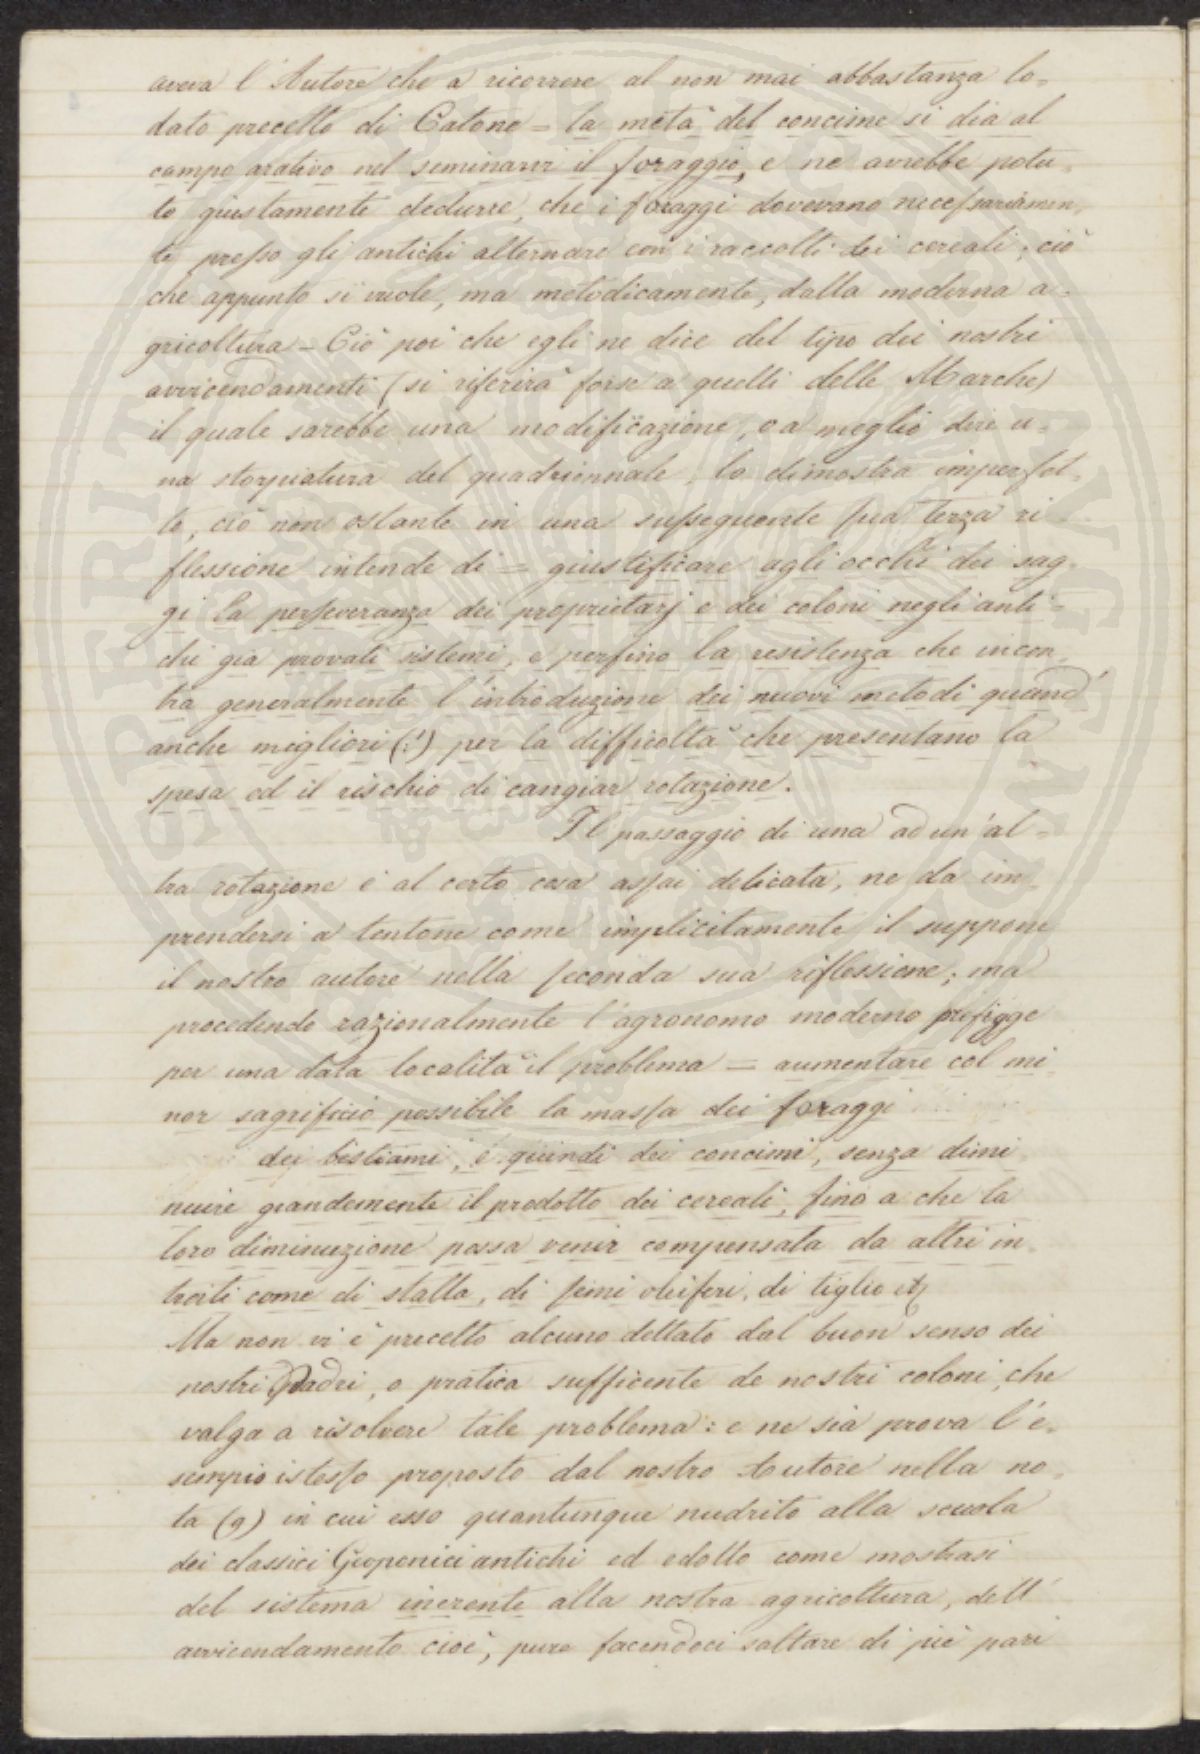 aveva l'Autore che a ricorrere al non mai abbastanza lo=
dato precetto di Catone = la metà del concime si dia al
campo arativo nel seminarvi il foraggio, e ne avrebbe potu-
to giustamente dedurre, che i foraggi dovevano necessariamen-
te presso gli antichi alternare con i raccolti dei cereali; ciò
che appunto si vuole, ma metodicamente, dalla moderna a=
gricoltura = Ciò poi che egli ne dice del tipo dei nostri
avvicendamenti (si riferirà forse a quelli delle Marche)
il quale sarebbe una modificazione, o a meglio dire u=
na storpiatura del quadriennale, lo dimostra imperfet=
to, ciò non ostante in una susseguente sua terza ri
flessione intende di = giustificare agli occhi dei sag-
gi la perseveranza dei proprietarj e dei coloni negli anti=
chi già provati sistemi, e perfino la resistenza che incon-
tra generalmente l'introduzione dei nuovi metodi quand'
anche migliori (!) per la difficoltà che presentano la
spesa ed il rischio di cangiar rotazione.
Il passaggio di una ad un'al=
tra rotazione è al certo cosa assai delicata, ne da im-
prendersi a tentone come implicitamente il suppone
il nostro autore nella seconda sua riflessione; ma
procedendo razionalmente l'agronomo moderno prefigge
per una data località il problema = aumentare col mi-
nor sagrificio possibile la massa dei foraggi
dei bestiami, e quindi dei concimi, senza dimi
nuire grandemente il prodotto dei cereali, fino a che la
loro diminuzione possa venir compensata da altri in-
troiti come di stalla, di semi oleiferi, di tiglio etc
Ma non vi è precetto alcuno dettato dal buon senso dei
nostri Padri, o pratica sufficente de nostri coloni, che
valga a risolvere tale problema: e ne sia prova l'e=
sempio istesso proposto dal nostro Autore nella no-
ta (9) in cui esso quantunque nudrito alla scuola
dei classici Geoponici antichi ed edotto come mostrasi
del sistema inerente alla nostra agricoltura, dell'
avvicendamento cioè, pure facendoci saltare di piè pari